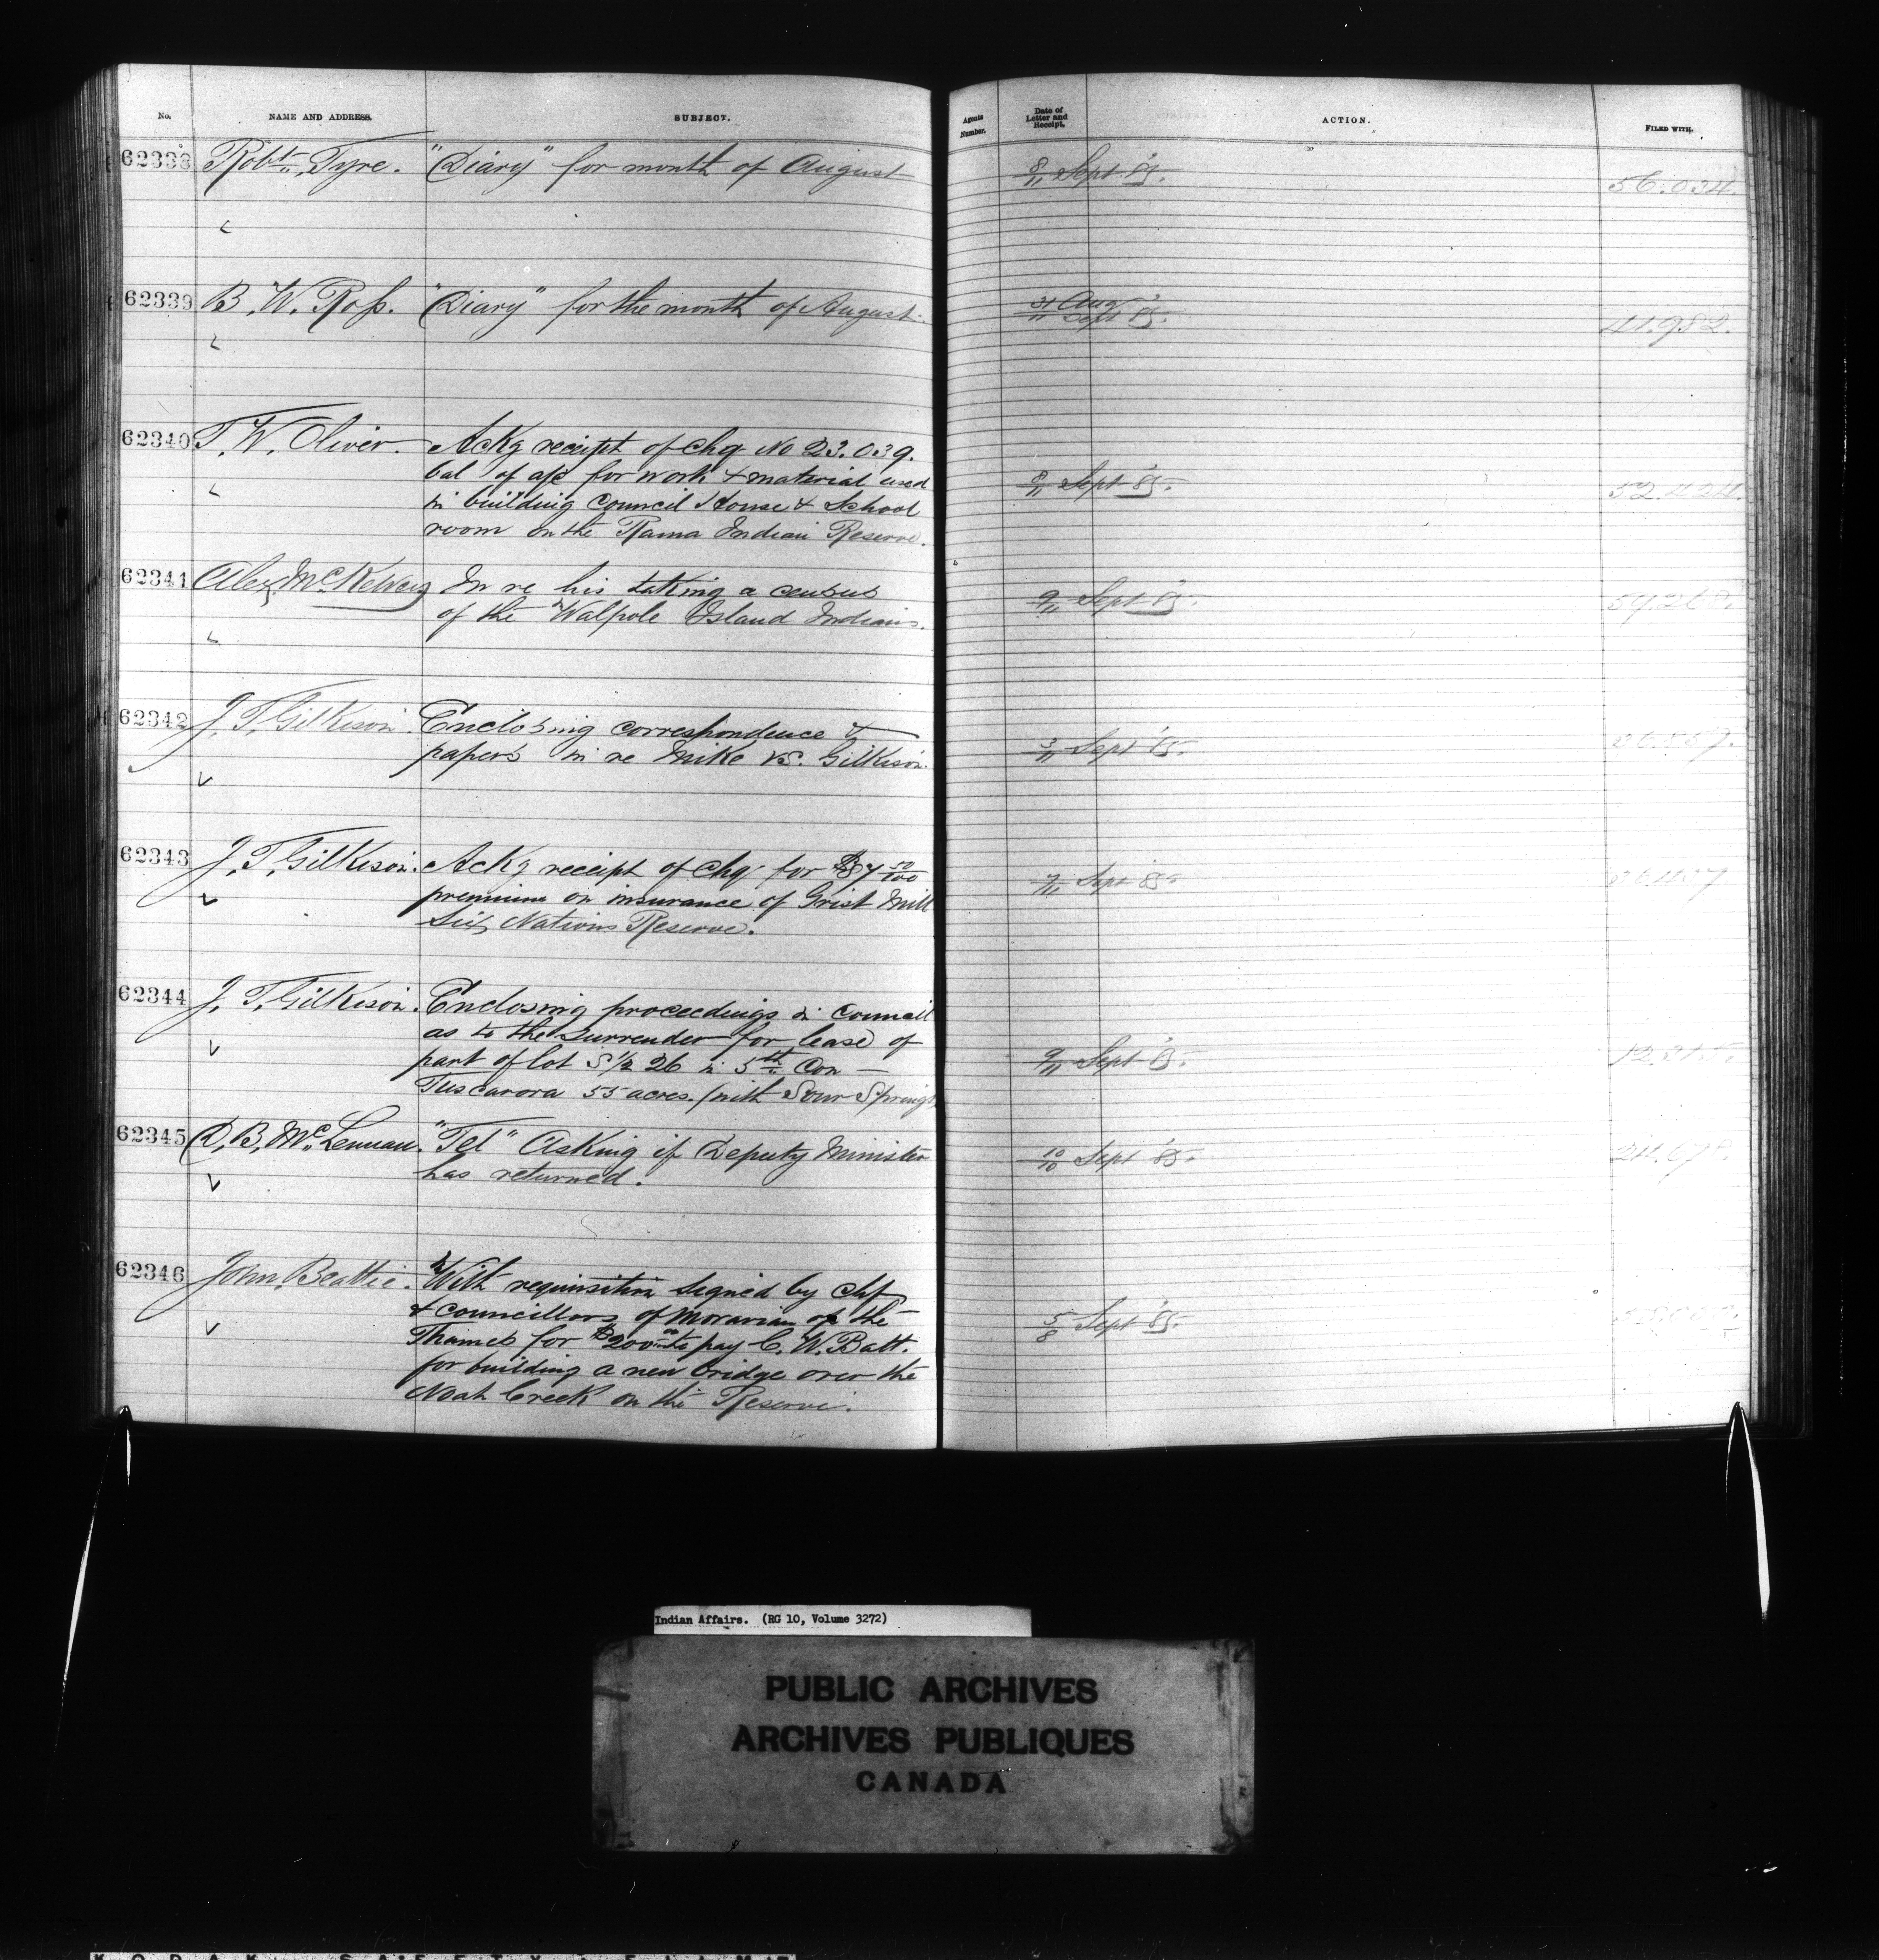 No. NAME AND ADDRESS. SUBJECT. Agents Number. Date of Letter and Receipt. ACTION. FILED WITH.
62338 Robt. Tyre. "Diary" for month of August 8/11 Sept '85. 56.034.
62339 B. W. Ross. "Diary" for the month of August. 31/11 Aug Sept '85. 41.982.
62340 T. W. Oliver. Ackg receipt of chq No 23.039.
bal of a/c for work & material used
in building Council House & School
room on the Rama Indian Reserve. 8/11 Sept '85. 52.424.
62341 Alex McKelvey In re his taking a census
of the Walpole Island Indians. 9/11 Sept '85.
62342 J. T. Gilkison. Enclosing correspondence &
papers in re Mike vs. Gilkison. 3/11 Sept '85.
62343 J. T. Gilkison. Ackg receipt of chq for $87 50/100
premium on insurance of Grist Mill
Six Nations Reserve. 7/11 Sept '85
62344 J. T. Gilkison. Enclosing proceedings in Council
as to the Surrender for lease of
part of lot S 1/2 26 in 5th Con —
Tuscarora 55 acres. (with Sour Springs 9/11 Sept '85.
62345 D. B. McLennan. "Tel" Asking if Deputy Minister
has returned. 10/10 Sept '85.
62346 John Beattie. With requisition signed by Chf
& Councillors of Moravian of the
Thames for $200 00 to pay C. W. Batt.
for building a new bridge over the
Noah Creek on the Reserve. 5/8 Sept '85.
Indian Affairs. (RG 10, Volume 3272)
PUBLIC ARCHIVES
ARCHIVES PUBLIQUES
CANADA
KODAK SAFETY FILM